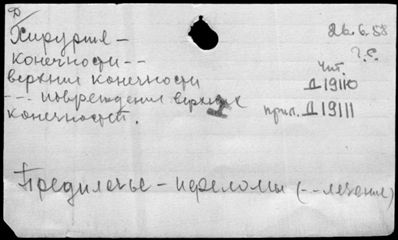 Д
Хирургия –
конечности --
верхния конечности
--- повреждения верхних
конечностей.
26.6.58
Г.С.
Чит.
Д 19110
прил. Д 19111
Предплечье – переломы (-- лечение)